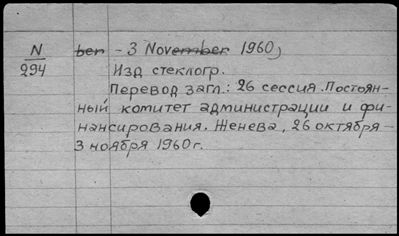 N ber - 3 November 1960)
294 Изд стеклогр.
Перевод загл.: 26 сессия. Постоян-
ный комитет администрации и фи-
нансирования. Женева, 26 октября -
3 ноября 1960г.